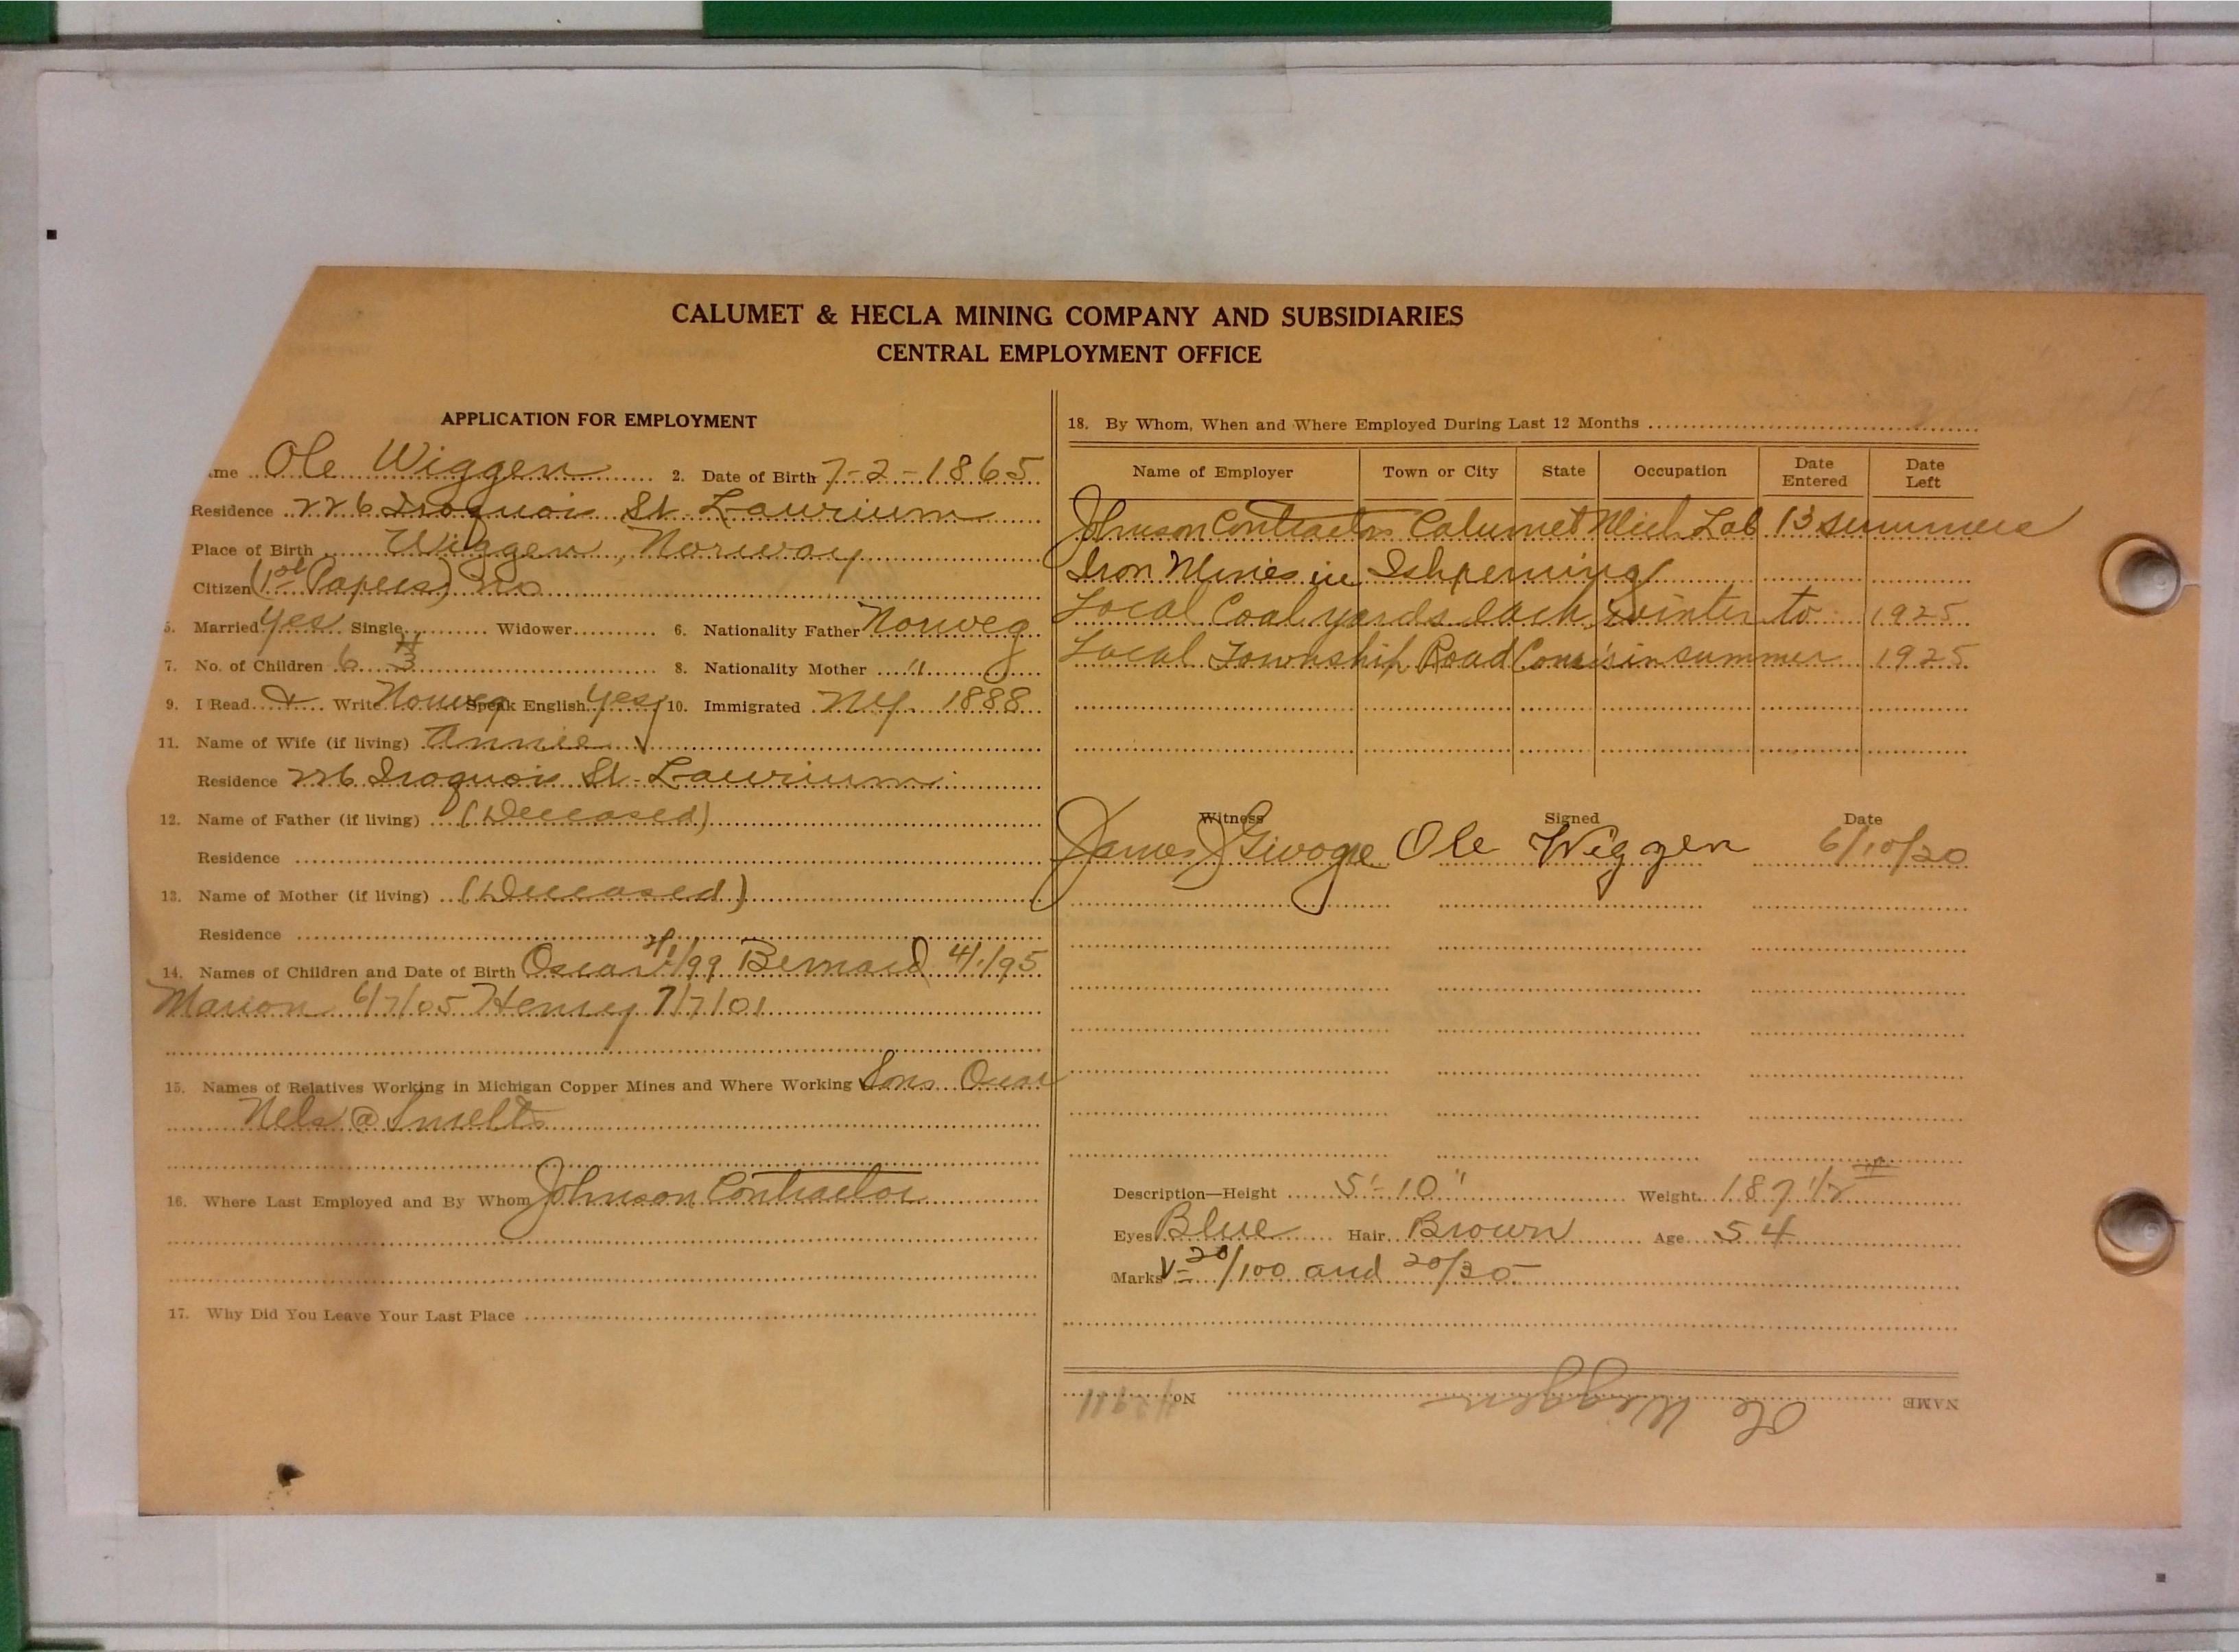 CALUMET & HECLA MINING COMPANY AND SUBSIDIARIES
CENTRAL EMPLOYMENT OFFICE
APPLICATION FOR EMPLOYMENT
me Ole Wiggen 2. Date of Birth 7-2-1865
Residence 226 Iroquois St Laurium
Place of Birth Wiggen, Norway
Citizen (1st Papers) no
5. Married yes Single Widower 6. Nationality Father Norweg
7. No. of Children 6 3 8. Nationality Mother "
9. I Read & Write Norweg Speak English yes 10. Immigrated NY. 1888
11. Name of Wife (if living) Annie
Residence 226 Iroquois St-Laurium
12. Name of Father (if living) (Deceased)
Residence
13. Name of Mother (if living) (Deceased)
Residence
14. Names of Children and Date of Birth Oscar /1/99 Bernard 4/1/95
Marion 6/7/05 Henry 7/7/01
15. Names of Relatives Working in Michigan Copper Mines and Where Working Sons Oscar
Nels @ Smelts
16. Where Last Employed and By Whom Johnson Contractor
17. Why Did You Leave Your Last Place
18. By Whom, When and Where Employed During Last 12 Months
Name of Employer Town or City State Occupation Date Entered Date Left
Johnson Contractor Calumet Mich Lab 13 summers
Iron Mines in Ishpeming
Local Coal yards each winter to 1925
Local Township Road Coms in summer 1925
Witness Signed Date
James Ole Wiggen 6/10/20
Description—Height 5'-10" Weight 187 1/2
Eyes Blue Hair Brown Age 54
Marks V= 20/100 and 20/30
NAME Ole Wiggen No.